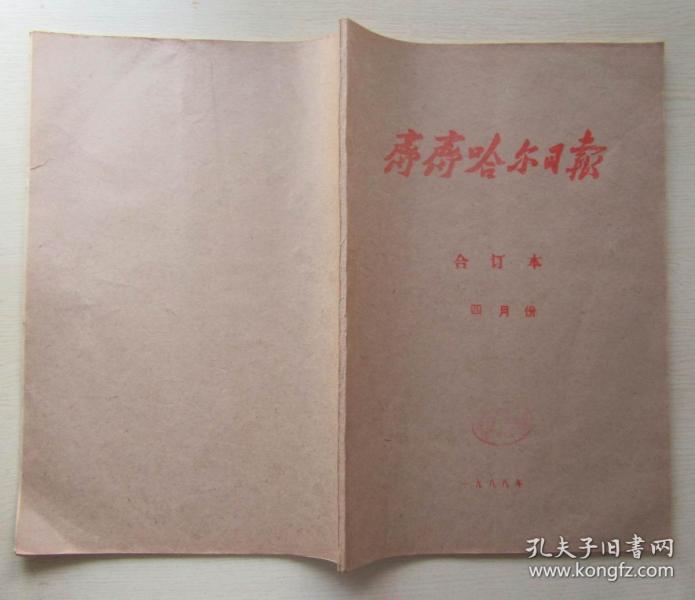 齐齐哈尔日报
合订本
四月份
一九八八年
孔夫子旧书网
www.kongfz.com